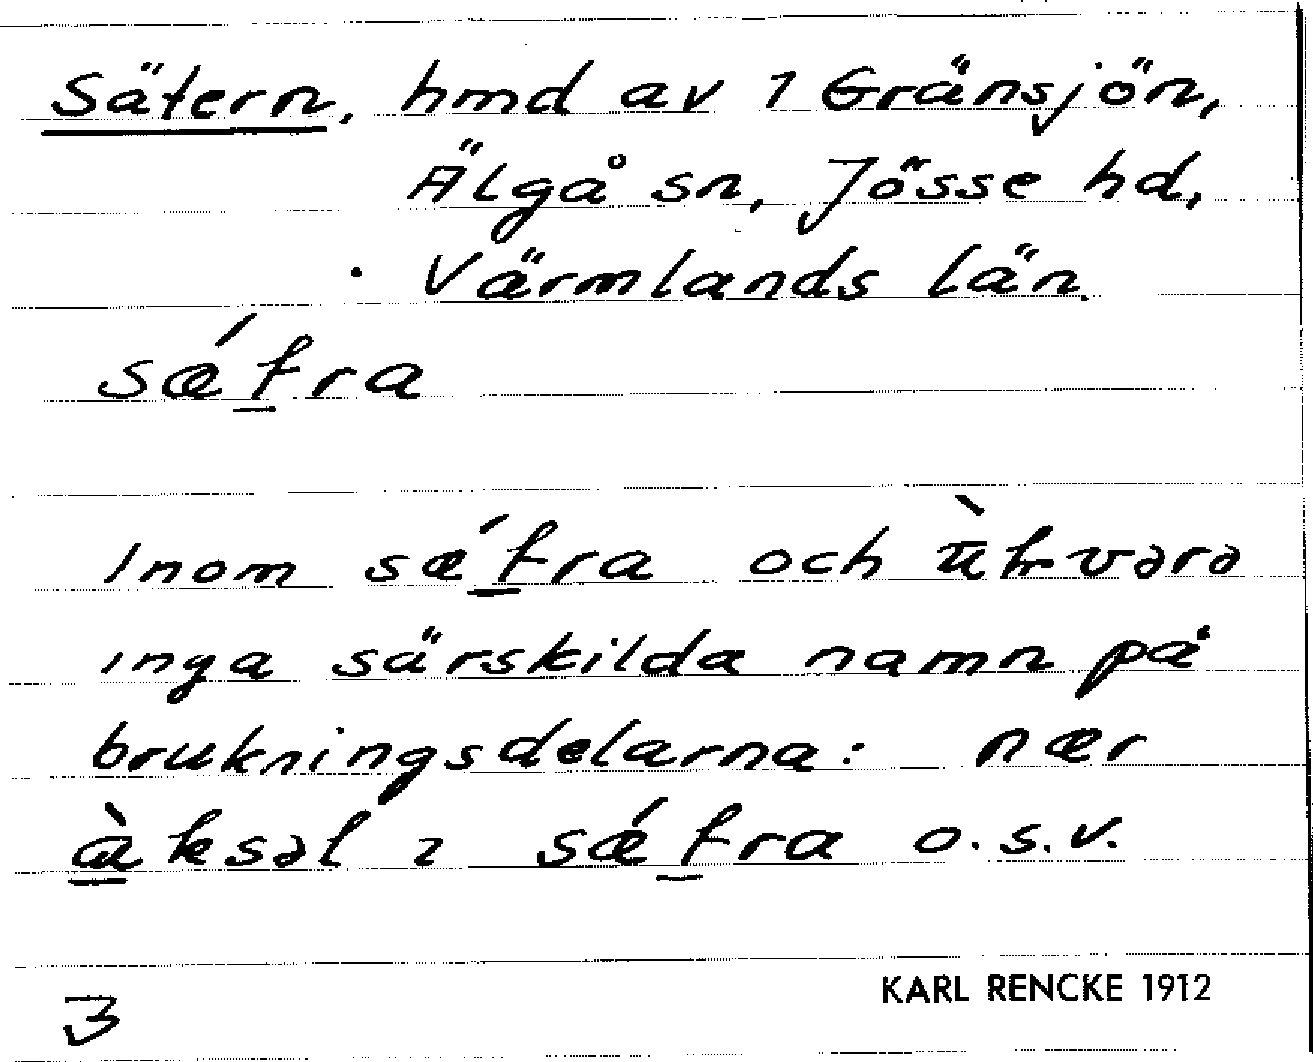 Sätern, hmd av 1 Gränsjön,
Älgå sn, Jösse hd,
Värmlands län.
sǽt̲ra
Inom sǽt̲ra och
inga särskilda namn på
brukningsdelarna: nær
à̲ksəl ı sǽt̲ra o.s.v.
3
KARL RENCKE 1912